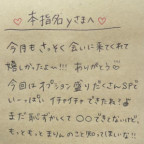 ♡本指名yさまへ♡
今日もさっそく会いに来てくれて
嬉しかったよ〜!!! ありがとう♡
今回はオプション盛りだくさんSPで
い〜っぱいイチャイチャできたね♪
まだ恥ずかしくて〇〇できないけど、
もっともっとまりんのこと知ってほしいな!!